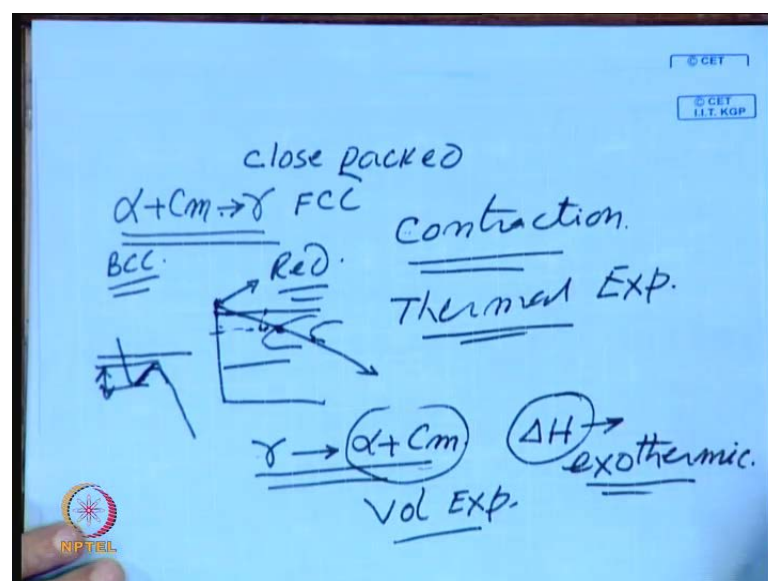 © CET
© CET
I.I.T. KGP
close packed
α+Cm→γ FCC
Contraction.
BCC.
Red.
Thermal Exp.
γ → α+Cm
ΔH →
exothermic.
Vol Exp.
NPTEL